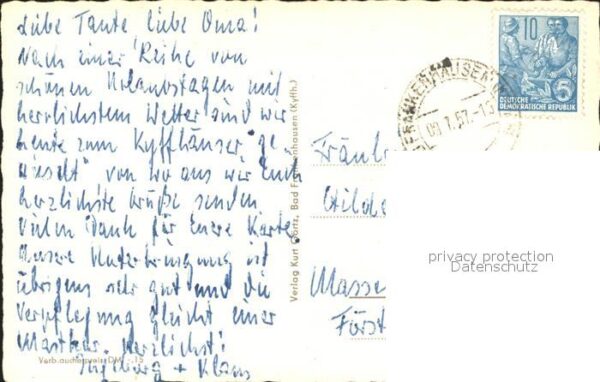 Liebe Tante, liebe Oma!
Nach einer Reihe von
schönen Urlaubstagen mit
herrlichstem Wetter sind wir
heute zum Kyffhäuser "ge
von wo aus wir Euch
herzlichste Grüße senden
Vielen Dank für Eure Karte.
Unsere Unterbringung ist
übrigens sehr gut und die
Verpflegung gleicht einer
Mastkur. Herzlichst!
Ingeborg + Klaus
Verbraucherpreis DM -,15
Verlag Kurt Görtz, Bad Frankenhausen (Kyffh.)
10
5
DEUTSCHE
DEMOKRATISCHE REPUBLIK
FRANKENHAUSEN
09.7.57.-1
Fräul
Hilde
Masse
Först
privacy protection
Datenschutz